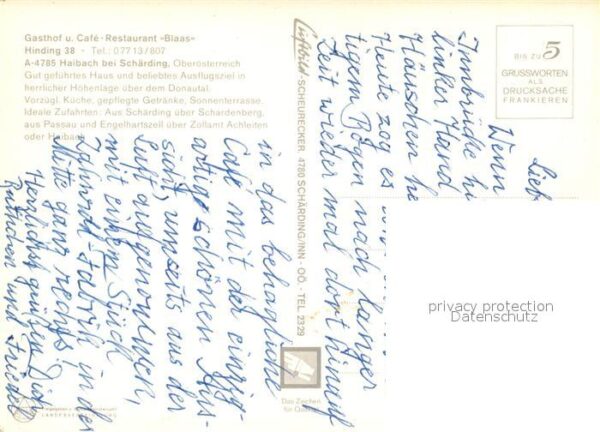 Gasthof u. Café - Restaurant »Blaas«
Hinding 38 - Tel.: 0 77 13 / 807
A-4785 Haibach bei Schärding, Oberösterreich
Gut geführtes Haus und beliebtes Ausflugsziel in
herrlicher Höhenlage über dem Donautal.
Vorzügl. Küche, gepflegte Getränke, Sonnenterrasse.
Ideale Zufahrten: Aus Schärding über Schardenberg,
aus Passau und Engelhartszell über Zollamt Achleiten
oder Haibach
Luftbild-SCHEURECKER 4780 SCHÄRDING/INN - OÖ. - TEL 2329
BIS ZU 5
GRUSSWORTEN
ALS
DRUCKSACHE
FRANKIEREN
Lieb
Wenn
Innbrücke hi
linker Hand
Häuschen he
Heute zog es
tigem Bogen nach langer
Zeit wieder mal dort hinauf
in das behagliche
Café mit der einzig-
artig schönen Aus-
sicht, umseits aus der
Luft aufgenommen,
mit einem Stück
Zahnrad-Fabrik in der
Mitte ganz rechts!
Herzlichst grüßen Dich
Ruthchen und Friedel
Das Zeichen
für Qualität
privacy protection
Datenschutz